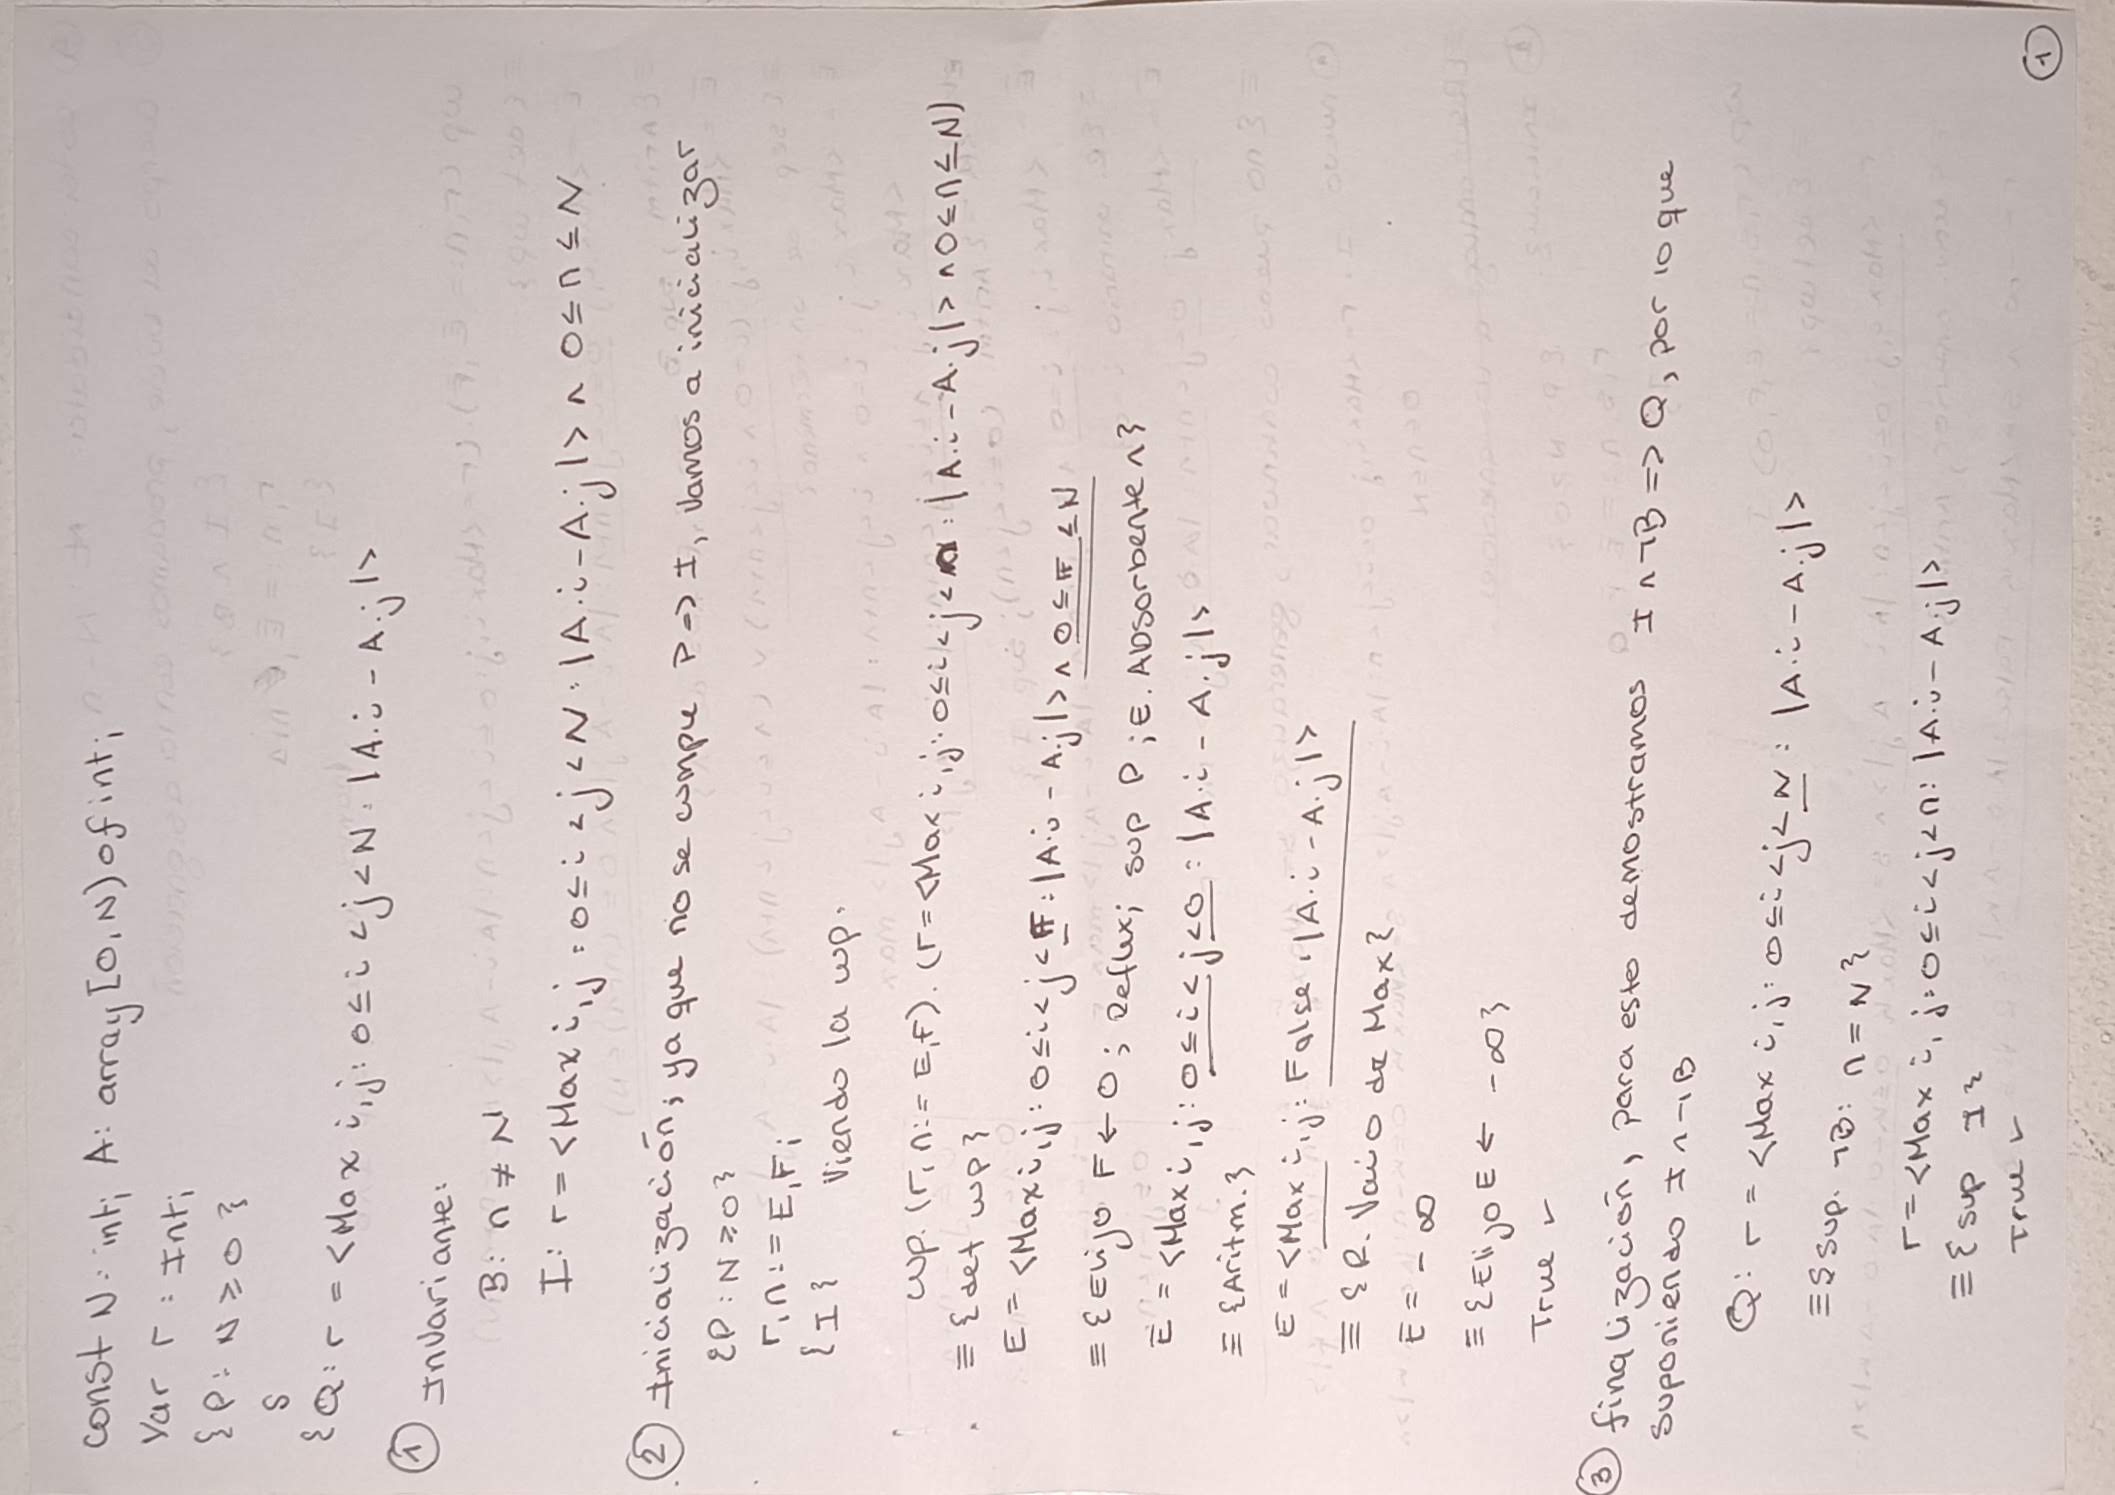 const N: int; A: array [0, N) of int;
Var r : Int;
{P: N ≥ 0}
S
{Q: r = <Max i,j: 0 ≤ i < j < N : |A.i - A.j|>
① Invariante:
B: n ≠ N
I: r = <Max i,j : 0 ≤ i < j < N : |A.i - A.j|> ∧ 0 ≤ n ≤ N
② Inicialización; ya que no se cumple P => I, Vamos a inicializar
{P : N ≥ 0}
r, n := E, F;
{I} Viendo la wp.
wp. (r, n := E, F). (r = <Max i,j: 0 ≤ i < j < n : |A.i - A.j|> ∧ 0 ≤ n ≤ N)
≡ {det wp}
E = <Max i,j : 0 ≤ i < j < F : |A.i - A.j|> ∧ 0 ≤ F ≤ N
≡ {Elijo F ← 0 ; Reflex; sup P ; E. Absorbente ∧}
E = <Max i,j : 0 ≤ i < j < 0 : |A.i - A.j|>
≡ {Aritm.}
E = <Max i,j : False : |A.i - A.j|>
≡ {R. Vacio de Max}
E = - ∞
≡ {Elijo E ← -∞}
True ✓
③ finalización, para esto demostramos I ∧ ¬B => Q, por lo que
suponiendo I ∧ ¬B
Q: r = <Max i, j: 0 ≤ i < j < N : |A.i - A.j|>
≡ {Sup. ¬B: n = N}
r = <Max i, j: 0 ≤ i < j < n: |A.i - A.j|>
≡ {sup I}
True ✓
①